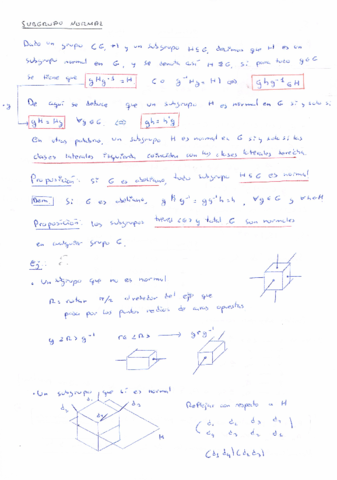 SUBGRUPO NORMAL
Dado un grupo (G, *) y un subgrupo H ≤ G, decimos que H es un
subgrupo normal en G, y se denota H ⊴ G, si para todo g ∈ G
se tiene que gHg⁻¹ = H (o g⁻¹Hg = H) ⇔ ghg⁻¹ ∈ H
De aquí se deduce que un subgrupo H es normal en G si y solo si
gH = Hg ∀g ∈ G ⇔ gh = h'g
En otras palabras, un subgrupo H es normal en G si y solo si las
clases laterales izquierda coinciden con las clases laterales derecha.
Proposición: Si G es abeliano, todo subgrupo H ≤ G es normal
Dem: Si G es abeliano, ghg⁻¹ = gg⁻¹h = h, ∀g ∈ G y ∀h ∈ H
Proposición: Los subgrupos y total G son normales
en cualquier grupo G.
Ej:
• Un subgrupo que no es normal
R: rotar π/2 alrededor del eje que
pasa por los puntos medios de caras opuestas
g <R> g⁻¹ r ∈ <R> → g r g⁻¹
• Un subgrupo que si es normal
d₁ d₂ d₃ d₄
H
Reflejos con respecto a H
( d₁ d₂ d₃ d₄ )